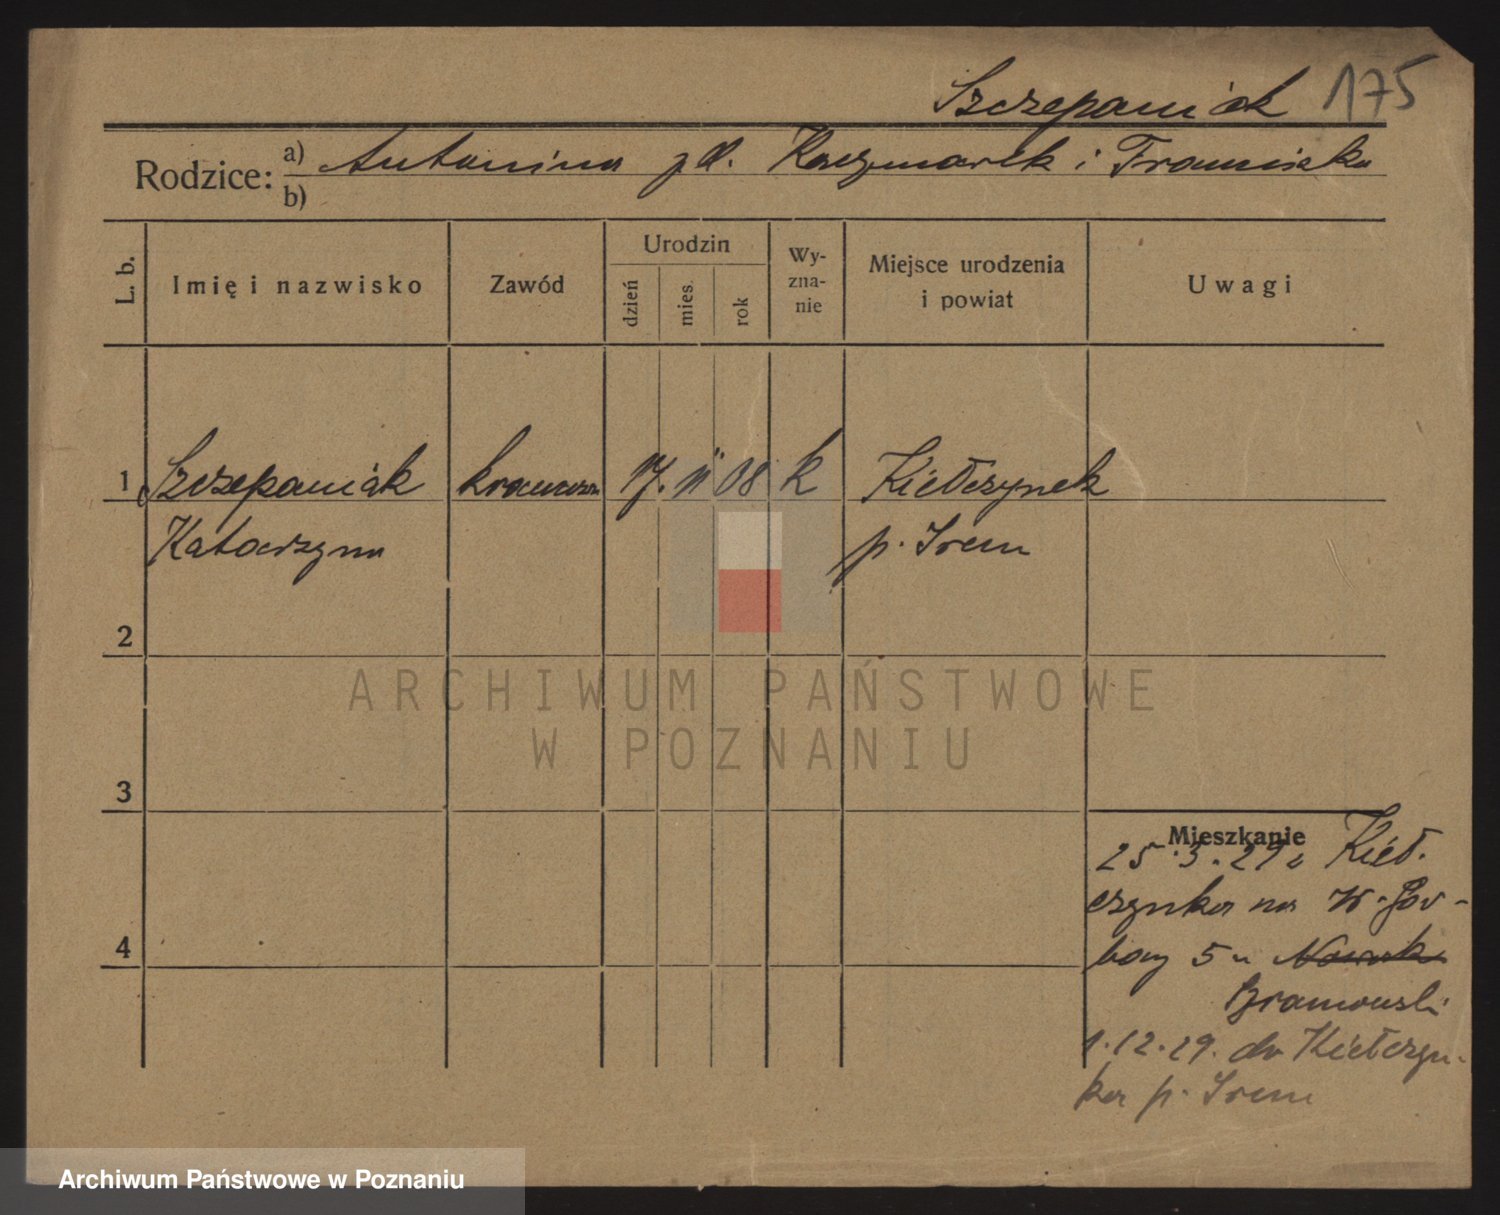 Szczepaniak 175
Rodzice: a) Antonina zd. Kaczmarek i Franciszka
b)
L. b.
Imię i nazwisko
Zawód
Urodzin
dzień
mies.
rok
Wy-
zna-
nie
Miejsce urodzenia
i powiat
Uwagi
1 Szczepaniak krawcowa 17. 11 08 k Kiełczynek
Katarzyna p. Śrem
2
3
4
Mieszkanie
25.3.29 z Kieł.
czynka na W. Gar-
bary 5 u Nowak
Bramowski
1.12.29. do Kiełczyn-
ka p. Śrem
ARCHIWUM PAŃSTWOWE
W POZNANIU
Archiwum Państwowe w Poznaniu